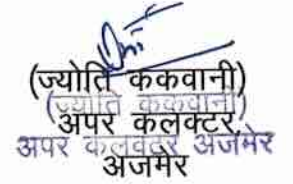 (ज्योति ककवानी)
(ज्योति ककवानी)
अपर कलक्टर,
अपर कलक्टर अजमेर
अजमेर